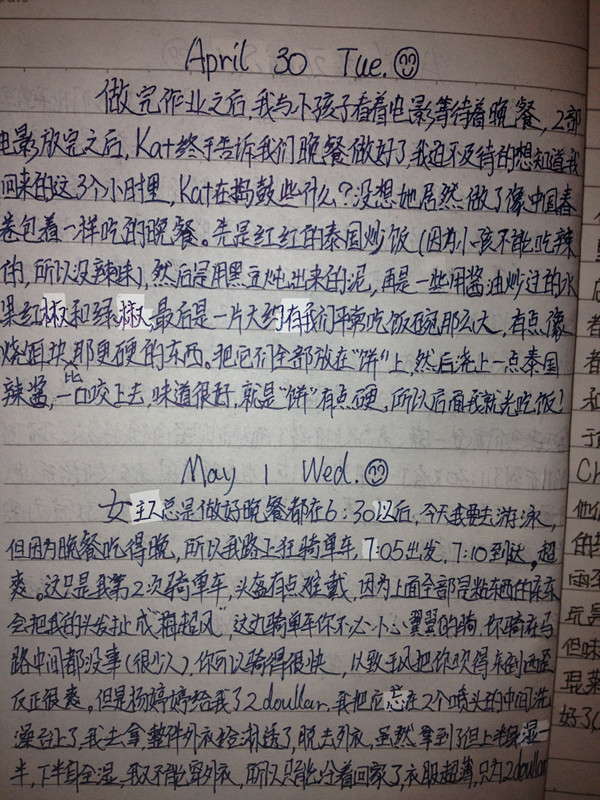 April 30 Tue.
做完作业之后,我与小孩子看着电影等待着晚餐,2部
电影放完之后,Kat终于告诉我们晚餐做好了,我迫不及待的想知道我
回来的这3个小时里,Kat在捣鼓些什么?没想她居然做了像中国春
卷包着一样吃的晚餐。先是红红的泰国炒饭(因为小孩不能吃辣
的,所以没辣味),然后是用黑豆炖出来的泥,再是一些用酱油炒过的水
果红椒和绿椒,最后是一片大约有我们平常吃饭碗那么大,有点像
烧饼块那更硬的东西。把它们全部放在“饼”上,然后浇上一点泰国
辣酱,一口咬上去,味道很好,就是“饼”有点硬,所以后面我就光吃饭!
May 1 Wed.
女主人总是做好晚餐都在6:30以后,今天我要去游泳,
但因为晚餐吃得晚,所以我路上狂骑单车,7:05出发,7:10到达。超
爽。这只是我第2次骑单车,头盔有点难戴,因为上面全部是粘东西的
会把我的头发扯成“超风”,这儿骑单车你不必小心翼翼的骑,你骑在马
路中间都没事(很少人),你可以骑得很快,以致于风把你吹得东倒西歪
反正很爽。但是杨婷婷给我了2doullar,我把它忘在2个喷头的中间洗
澡台上了,我去拿整件外衣给淋透了,脱去外衣,虽然拿到了但上半身湿一
半,下半身全湿,我又不能穿外衣,所以只能 着回家了,衣服超薄,只为2doullar
Ch
他们
的
玩是
但味
好了(